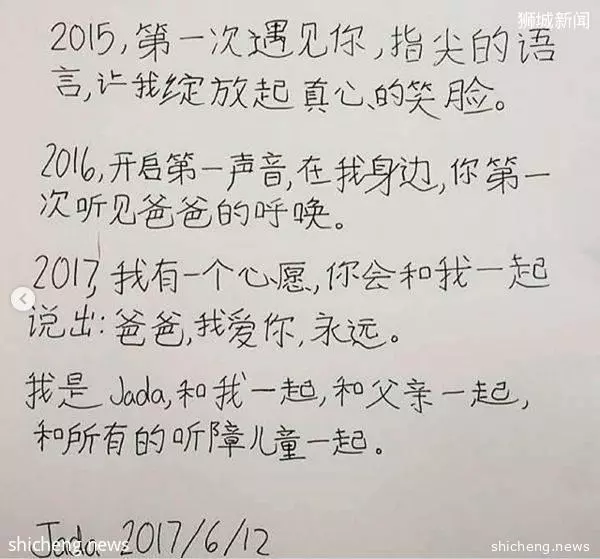 狮城新闻
2015,第一次遇见你,指尖的语
言,让我绽放起真心的笑脸。
2016,开启第一声音,在我身边,你第一
次听见爸爸的呼唤。
2017,我有一个心愿,你会和我一起
说出:爸爸,我爱你,永远。
我是Jada,和我一起,和父亲一起,
和所有的听障儿童一起。
Jada 2017/6/12
shicheng.news
shicheng.news